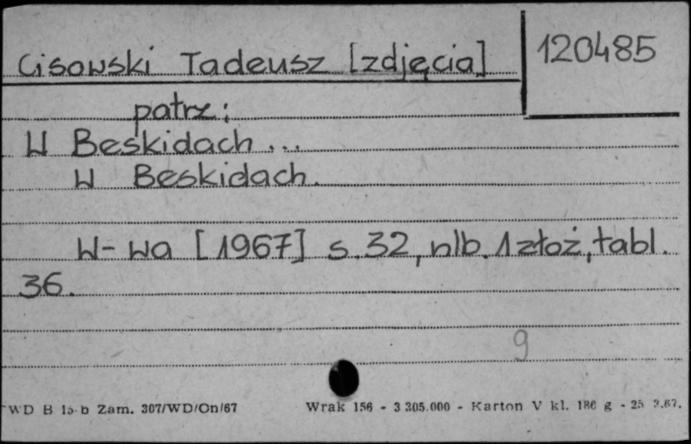 Cisowski Tadeusz [zdjęcia]
120485
patrz:
W Beskidach ...
W Beskidach.
W-wa [1967] s. 32, nlb. 1 złoż, tabl.
36.
9
WD B 15-b Zam. 307/WD/On/67 Wrak 156 - 3 305.000 - Karton V kl. 180 g - 25 3.67.